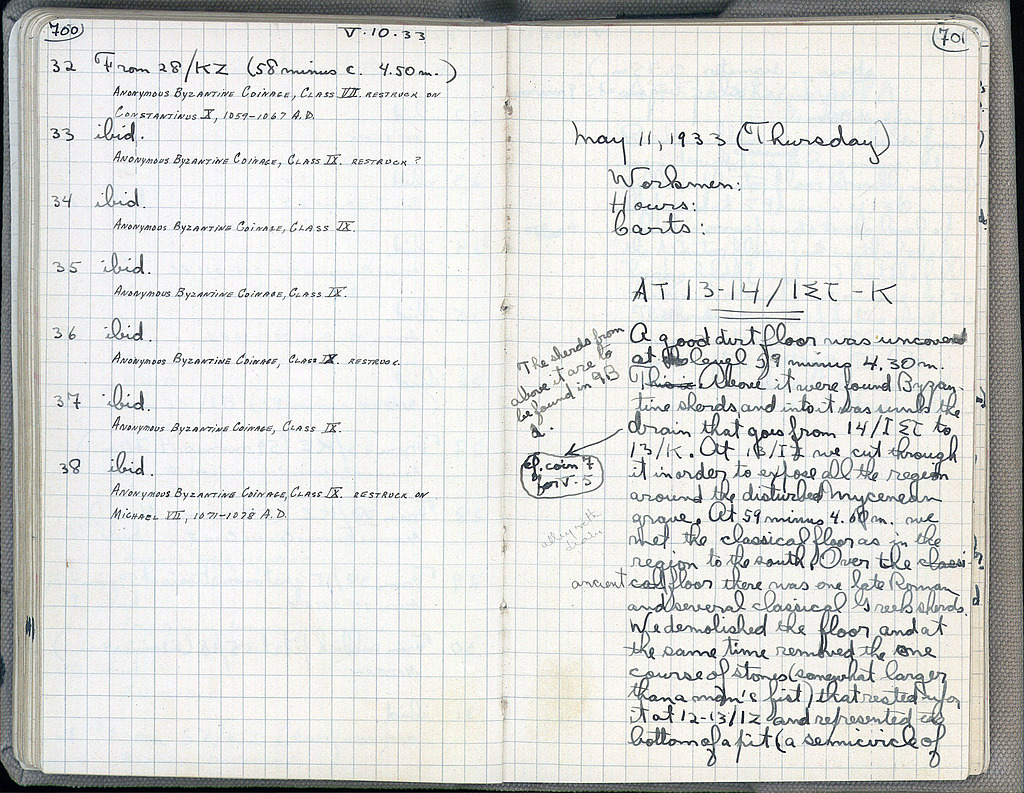 700
V·10·33
32 From 28/KZ (58 minus c. 4.50 m.)
Anonymous Byzantine Coinage, Class VII. restruck on
Constantinus X, 1059-1067 A.D.
33 ibid.
Anonymous Byzantine Coinage, Class IX. restruck?
34 ibid.
Anonymous Byzantine Coinage, Class IX.
35 ibid.
Anonymous Byzantine Coinage, Class IX.
36 ibid.
Anonymous Byzantine Coinage, Class IX. restruck.
37 ibid.
Anonymous Byzantine Coinage, Class IX.
38 ibid.
Anonymous Byzantine Coinage, Class IX. restruck on
Michael VII, 1071-1078 A.D.
701
May 11, 1933 (Thursday)
Workmen:
Hours:
Carts:
AT 13-14/IΣT-K
A good dirt floor was uncovered
at the level 59 minus 4.30 m.
This is Above it were found Byzan-
tine sherds, and into it was sunk the
drain that goes from 14/IΣT to
13/K. At 13/IZ we cut through
it in order to expose all the region
around the disturbed Mycenean
grave. At 59 minus 4.60 m. we
met the classical floor as in the
region to the south. Over the classi-
cal floor there was one late Roman
and several classical Greek sherds.
We demolished the floor and at
the same time removed the one
course of stones (somewhat larger
than a man's fist) that rested upon
it at 12-13/IZ and represented the
bottom of a pit (a semicircle of
The sherds from
above it are to
be found in 9B
d.
cf. coin 7
for V-5
alley with
drain
ancient